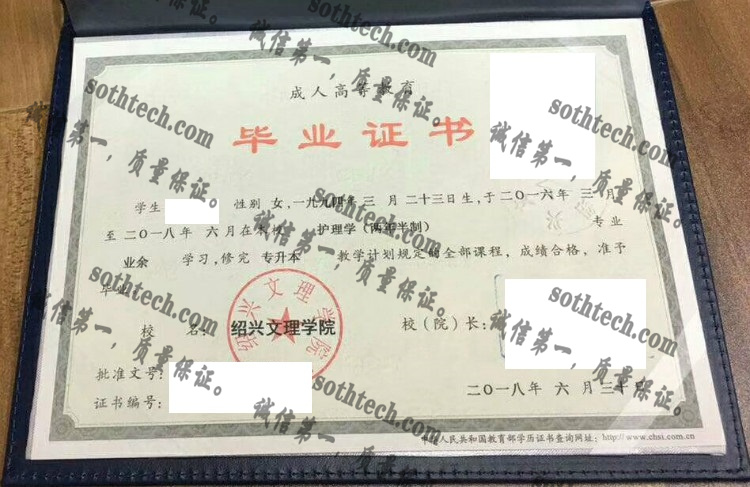 成人高等教育
毕业证书
学生 性别 女,一九九四年 三 月 二十三日生,于二〇一六年 三 月
至 二〇一八年 六月在本校 护理学(两年半制) 专业
业余 学习,修完 专升本 教学计划规定的全部课程,成绩合格,准予
毕业
校 名: 绍兴文理学院 校(院)长:
绍兴文理学院
批准文号:
证书编号: 二〇一八年 六 月 三十日
中华人民共和国教育部学历证书查询网址:http://www.chsi.com.cn
sothtech.com
诚信第一,质量保证。
sothtech.com
诚信第一,质量保证。
sothtech.com
诚信第一,质量保证。
sothtech.com
诚信第一,质量保证。
sothtech.com
诚信第一,质量保证。
sothtech.com
诚信第一,质量保证。
sothtech.com
诚信第一,质量保证。
sothtech.com
诚信第一,质量保证。